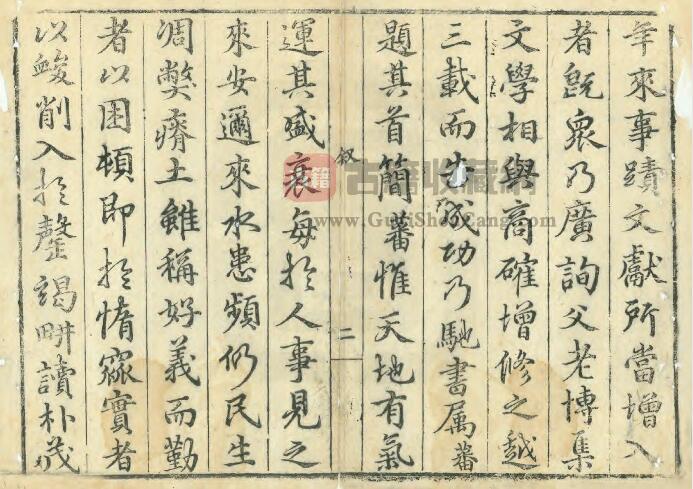 年來事蹟文獻所當增入
者既衆乃廣詢父老博集
文學相與商確增修之越
三載而告成功乃馳書属蕃
題其首簡蕃惟天地有氣
叙
二
運其盛衰每於人事見之
來安邇來水患頻仍民生
凋弊瘠土雖稱好義而勤
者以困頓即於惰窳實者
以朘削入於罄竭畊讀朴茂
古籍收藏
www.GujiShouCang.com